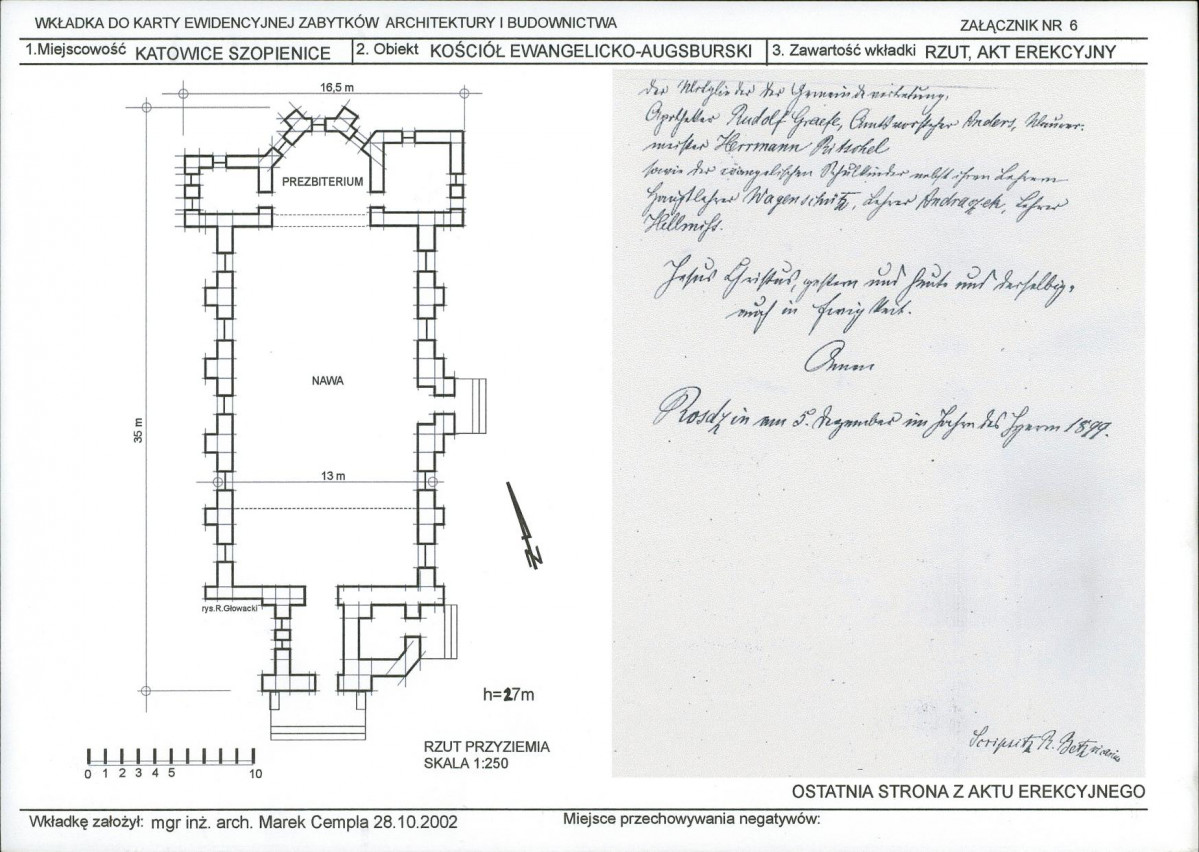 WKŁADKA DO KARTY EWIDENCYJNEJ ZABYTKÓW ARCHITEKTURY I BUDOWNICTWA
ZAŁĄCZNIK NR 6
1.Miejscowość KATOWICE SZOPIENICE
2. Obiekt KOŚCIÓŁ EWANGELICKO-AUGSBURSKI
3. Zawartość wkładki RZUT, AKT EREKCYJNY
16,5 m
PREZBITERIUM
NAWA
35 m
13 m
N
rys.R.Głowacki
h=27m
RZUT PRZYZIEMIA
SKALA 1:250
0 1 2 3 4 5 10
der Mitglieder der Gemeindevertretung,
Apotheker Rudolf Graefe, Amtsvorsteher Anders, Maurer-
meister Herrmann Ritschel
sowie der evangelischen Schulkinder nebst ihren Lehrern
Hauptlehrer Wagenschütz, Lehrer Andraczek, Lehrer
Hillmihs.
Jesus Christus, gestern und heute und derselbig,
auch in Ewigkeit.
Amen
Rosdzin am 5. Dezember im Jahre des Herrn 1899.
Scripsit R. Betz
OSTATNIA STRONA Z AKTU EREKCYJNEGO
Wkładkę założył: mgr inż. arch. Marek Cempla 28.10.2002
Miejsce przechowywania negatywów: